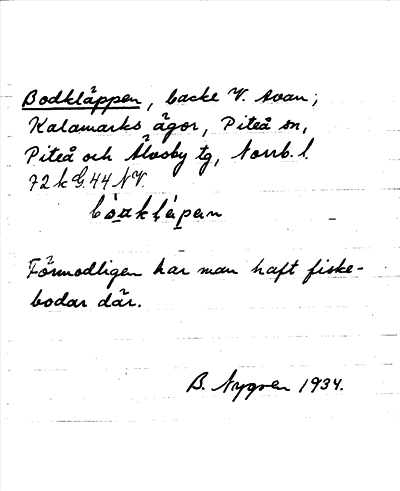 Bodkläppen, backe V. Avan;
Kalamarks ägor, Piteå sn,
Piteå och Älvsby tg, Norrb. l.
72 k G. 44 NV.
Förmodligen har man haft fiske-
bodar där.
B. Nygren 1934.